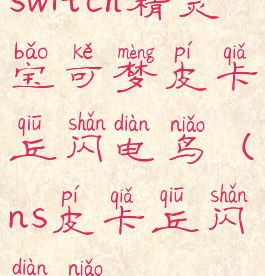 switch精灵
bǎo kě mèng pí qiǎ
宝可梦皮卡
qiū shǎn diàn niǎo
丘闪电鸟（
pí qiǎ qiū shǎn
ns皮卡丘闪
diàn niǎo